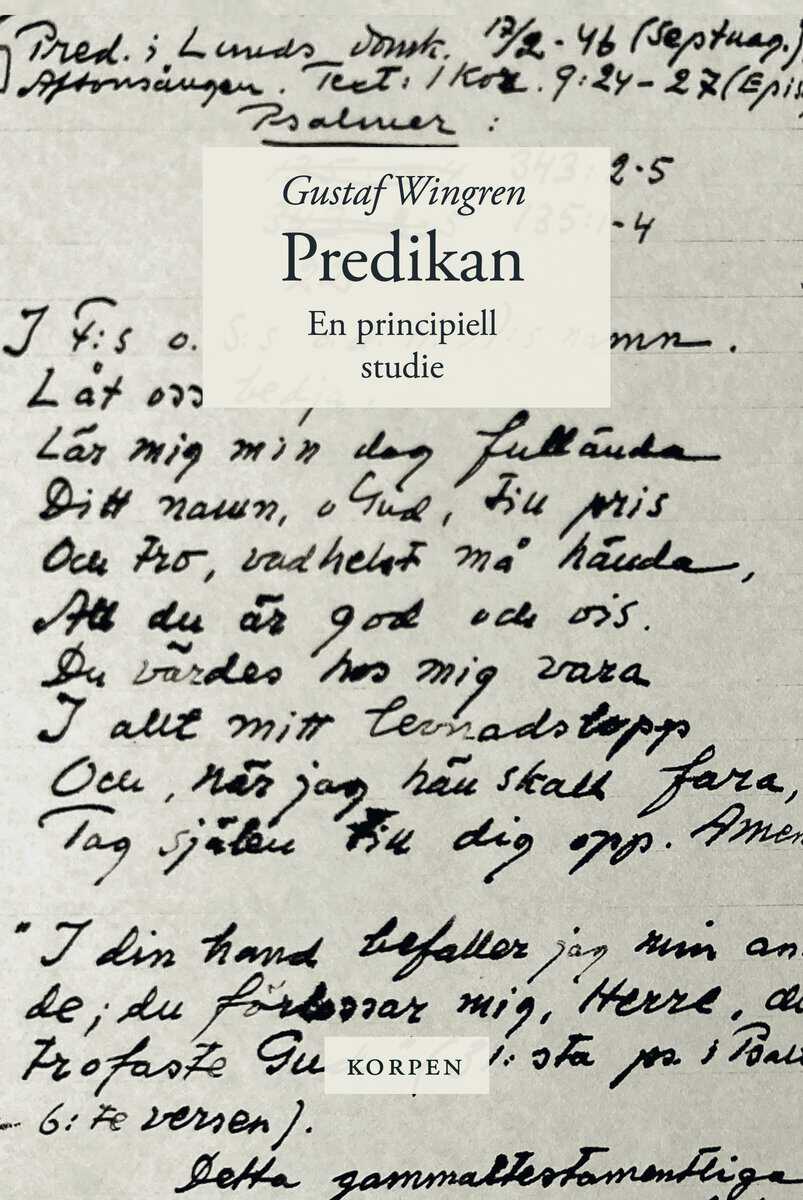 Pred. i Lunds domk. 17/2 - 46 (Septuag.)
Aftonsången. Text: 1 Kor. 9:24-27 (Epis
Psalmer :
343:2-5
135:1-4
Gustaf Wingren
Predikan
En principiell
studie
I F:s o. S:s namn.
Låt oss bedja.
Lär mig min dag fullända
Ditt namn, o Gud, till pris
Och tro, vadhelst må hända,
Att du är god och vis.
Du värdes hos mig vara
I allt mitt levnadslopp
Och, när jag hän skall fara,
Tag själen till dig opp. Amen
"I din hand befaller jag min an-
de; du förlossar mig, Herre, du
trofaste Gu :sta ps. i Psalt
6:te versen).
Detta gammaltestamentliga
KORPEN